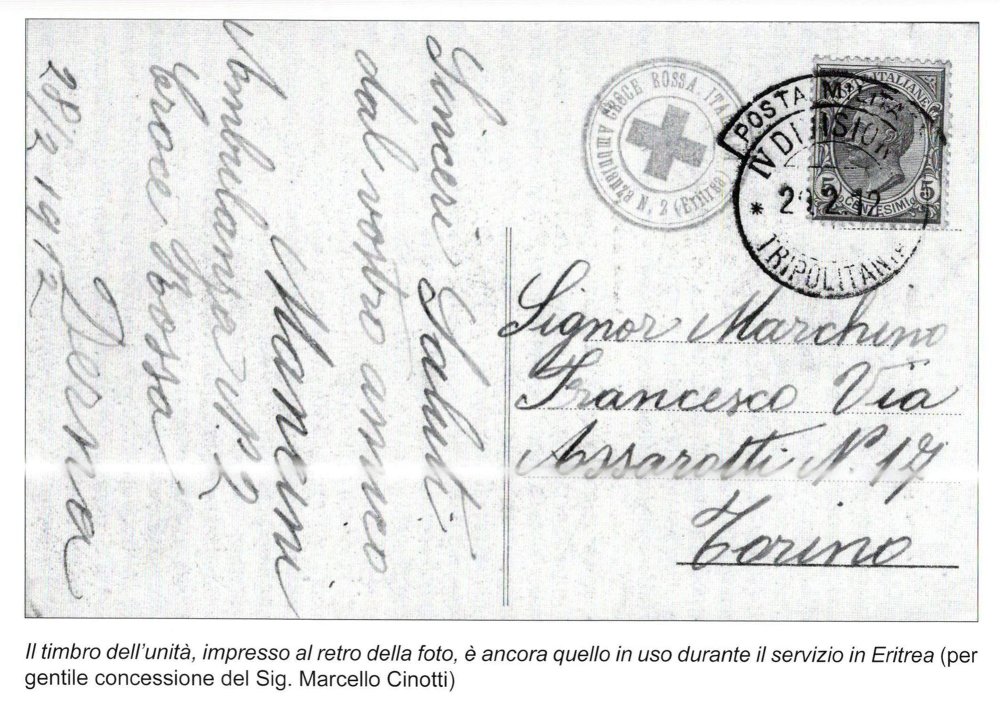 Sinceri Saluti
dal vostro amico
Mancini
Ambulanza N. 2
Croce Rossa
Derna
28/2 1912
CROCE ROSSA ITAL
Ambulanza N. 2 (Eritrea)
POSTA MILITARE
IV DIVISION
* 29.2.12
TRIPOLITANIA
ITALIANE
5 5
CENTESIMI
Signor Marchino
Francesco Via
Assarotti N. 17
Torino
Il timbro dell'unità, impresso al retro della foto, è ancora quello in uso durante il servizio in Eritrea (per
gentile concessione del Sig. Marcello Cinotti)